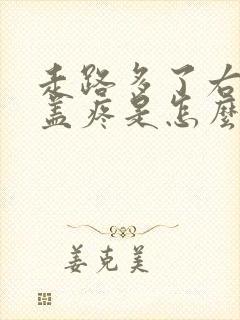 走路多了右
盖疼是怎麼
姜克美